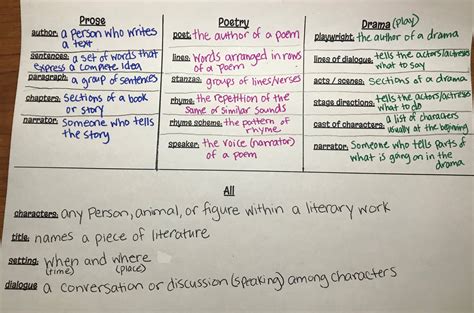 Prose
author: a person who writes
a text
sentences: a set of words that
express a complete idea
paragraph: a group of sentences
chapters: sections of a book
or story
narrator: someone who tells
the story
Poetry
poet: the author of a poem
lines: words arranged in rows
of a poem
stanzas: groups of lines/verses
rhyme: the repetition of the
same or similar sounds
rhyme scheme: the pattern of
rhyme
speaker: the voice (narrator)
of a poem
Drama (play)
playwright: the author of a drama
lines of dialogue: tells the actors/actresses
what to say
acts / scenes: sections of a drama
stage directions: tells the actors/actresses
what to do
cast of characters: a list of characters
usually at the beginning
narrator: someone who tells parts of
what is going on in the
drama
All
characters: any person, animal, or figure within a literary work
title: names a piece of literature
setting: when and where
(time) (place)
dialogue a conversation or discussion (speaking) among characters